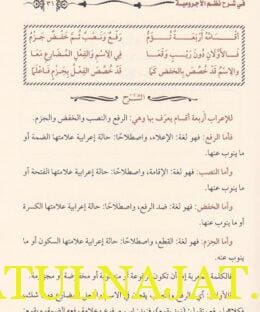 في شرح نظم الآجرومية
٣١
أقسامه أربعة تؤم رفع ونصب ثم خفض جزم
فالأولان دون ريب وقعا في الاسم والفعل المضارع معا
والاسم قد خصص بالخفض كما قد خصص الفعل بجزم فاعلما
الشرح
للإعراب أربعة أقسام يعرف بها وهي: الرفع والنصب والخفض والجزم.
فأما الرفع: فهو لغة: الإعلاء، واصطلاحًا: حالة إعرابية علامتها الضمة أو
ما ينوب عنها.
وأما النصب: فهو لغة: الإقامة، واصطلاحًا: حالة إعرابية علامتها الفتحة أو
ما ينوب عنها.
وأما الخفض: فهو لغة: ضد الرفع، واصطلاحًا: حالة إعرابية علامتها الكسرة
أو ما ينوب عنها.
وأما الجزم: فهو لغة: القطع، واصطلاحًا: حالة إعرابية علامتها السكون أو ما
ينوب عنه.
فالكلمة المعربة إما أن تكون مرفوعة أو منصوبة أو مخفوضة أو مجزومة.
ATULNAJAT.